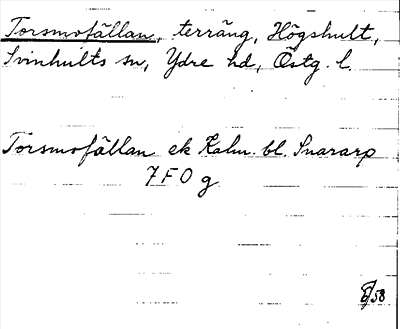 Torsmofällan, terräng, Högshult,
Svinhults sn, Ydre hd, Östg. l.
Torsmofällan ek Kalm. bl. Snararp
7 F O g
58